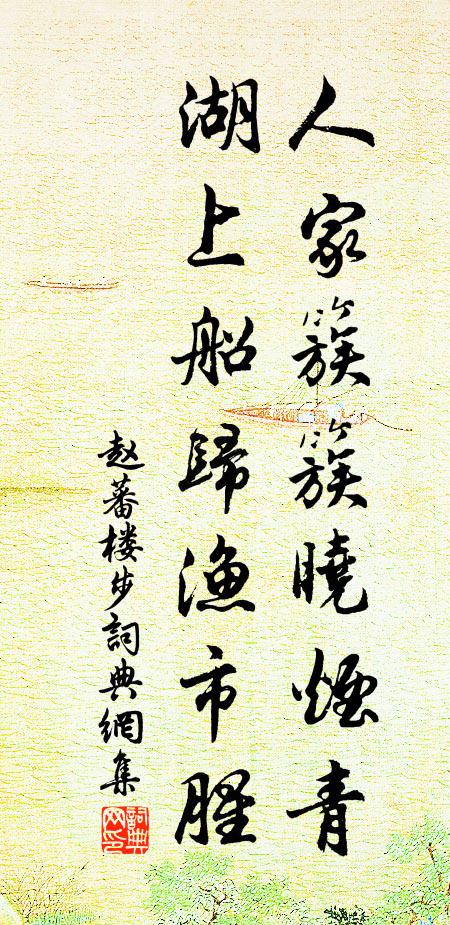 人家簇簇曉煙青
湖上船歸漁市腥
赵蕃楼步詞典網集
詞典網印